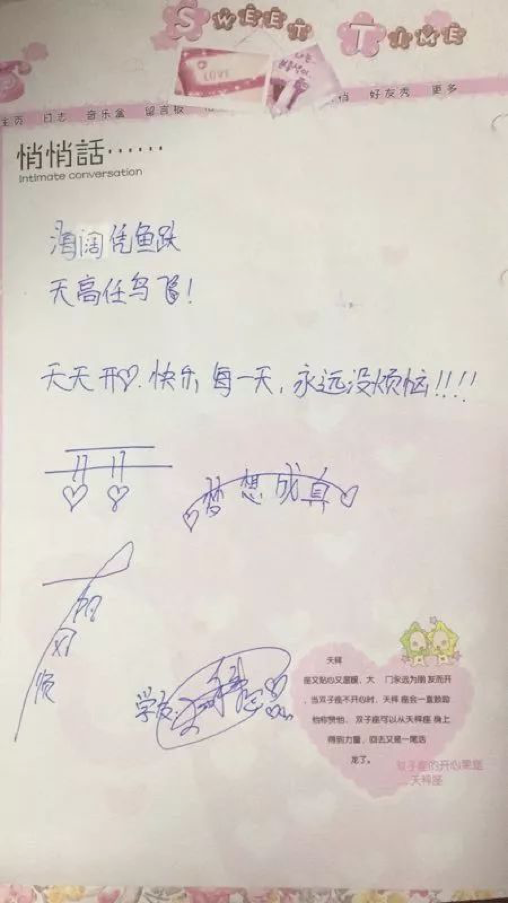 SWEET TIME
LOVE
主页 日志 音乐盒 留言板 好友秀 更多
悄悄話……
Intimate conversation
海阔凭鱼跃
天高任鸟飞!
天天开♡.快乐每一天,永远没烦恼!!!!
开开
♡♡
梦想成真
一帆风顺
学友:
天秤
座又贴心又温暖,大 门永远为朋友而开
,当双子座不开心时,天秤 座会一直鼓励
他和赞他, 双子座可以从天秤座 身上
得到力量,回去又是一尾活
龙了。
双子座的开心果是
天秤座